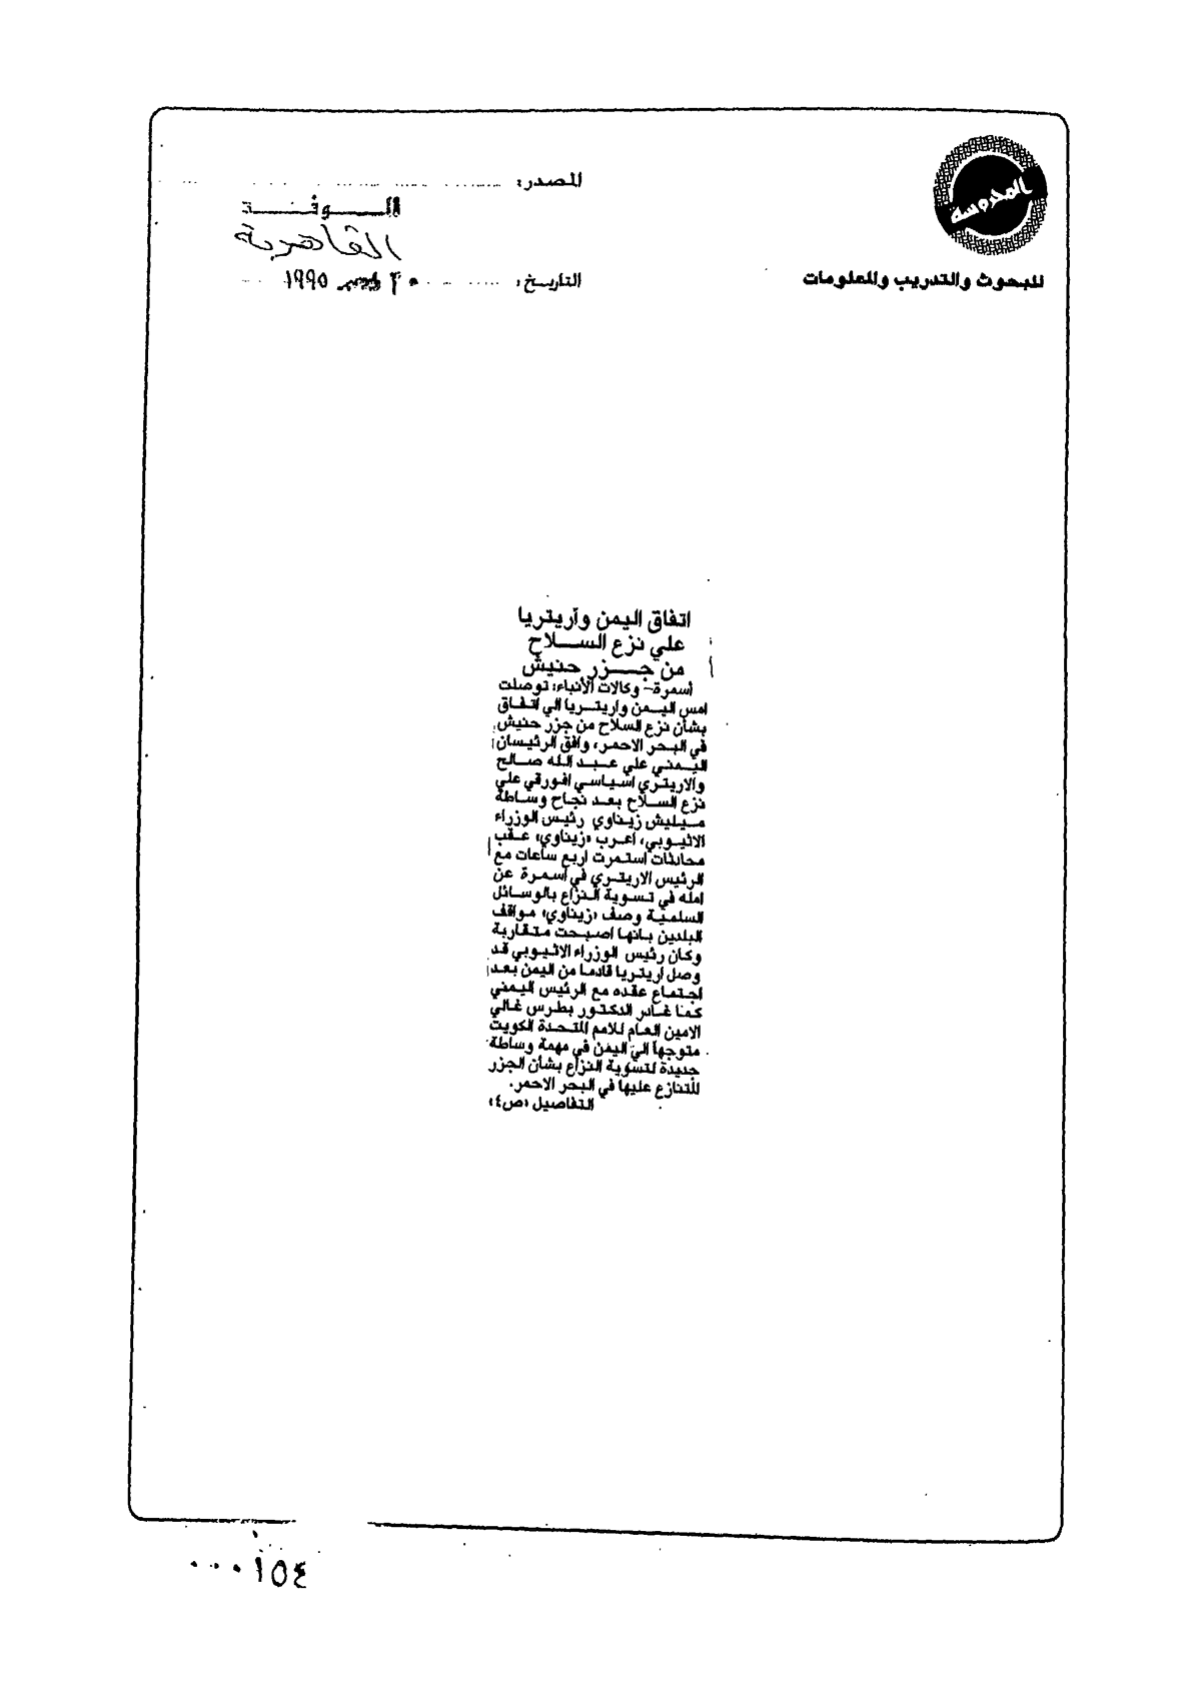 المحروسة
للبحوث والتدريب والمعلومات
المصدر:
القاهرية
التاريخ: ١٩٩٥
اتفاق اليمن وأريتريا
علي نزع الســلاح
من جــزر حنيش
أسمرة - وكالات الأنباء: توصلت
امس اليمن واريتريا الي اتفاق
بشأن نزع السلاح من جزر حنيش
في البحر الاحمر، وافق الرئيسان
اليمني علي عبد الله صالح
والاريتري اسياسي افورقي علي
نزع السلاح بعد نجاح وساطة
ميليش زيناوي رئيس الوزراء
الاثيوبي، أعرب «زيناوي» عقب
محادثات استمرت اربع ساعات مع
الرئيس الاريتري في أسمرة عن
امله في تسوية النزاع بالوسائل
السلمية وصف «زيناوي» مواقف
البلدين بانها اصبحت متقاربة
وكان رئيس الوزراء الاثيوبي قد
وصل اريتريا قادما من اليمن بعد
اجتماع عقده مع الرئيس اليمني
كما غادر الدكتور بطرس غالي
الامين العام للامم المتحدة الكويت
متوجهاً الي اليمن في مهمة وساطة
جديدة لتسوية النزاع بشأن الجزر
المتنازع عليها في البحر الاحمر.
التفاصيل «ص٤»
٠٠٠١٥٤